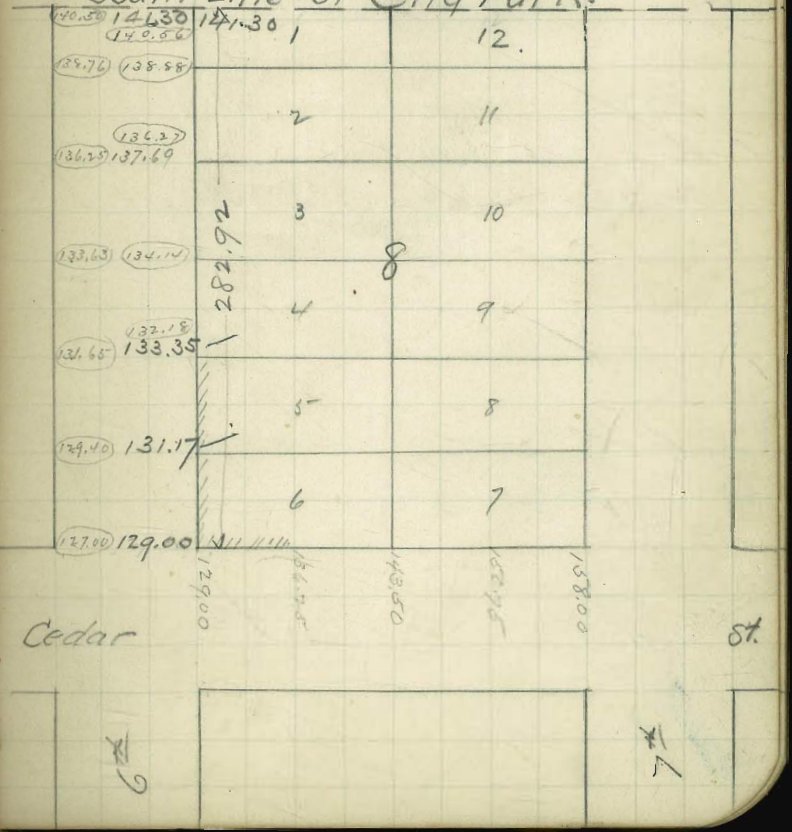 South Line of City Park.
140.50 141.30 141.30
140.56
1 12.
138.76 138.88
2 11
136.27
136.25 137.69
3 10
282.92
133.63 134.14
8
4 9
132.18
131.65 133.35
5 8
129.40 131.17
6 7
127.00 129.00
129.00 136.25 143.50 158.00
Cedar St.
6th 7th